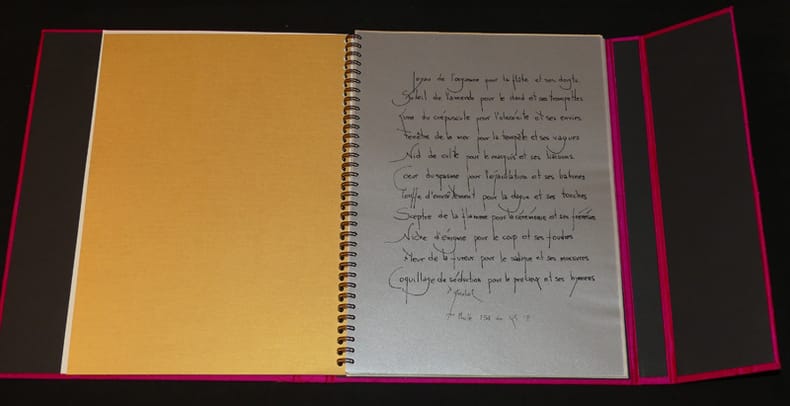 Joyau de l'orgasme pour la flûte et ses doigts
Soleil de l'amende pour le dard et ses trompettes
Lime du crépuscule pour l'obscénité et ses envies
Fenêtre de la mer pour la tempête et ses vagues
Nid de culte pour le marquis et ses liaisons
Coeur du spasme pour l'éjaculation et ses batines
Touffe d'envoûtement pour la dague et ses torches
Sceptre de la flamme pour la cérémonie et ses
Niche d'énigme pour le coup et ses foudres
Fleur de la fureur pour le sadique et ses morsures
Coquillage de séduction pour le précieux et ses hymnes